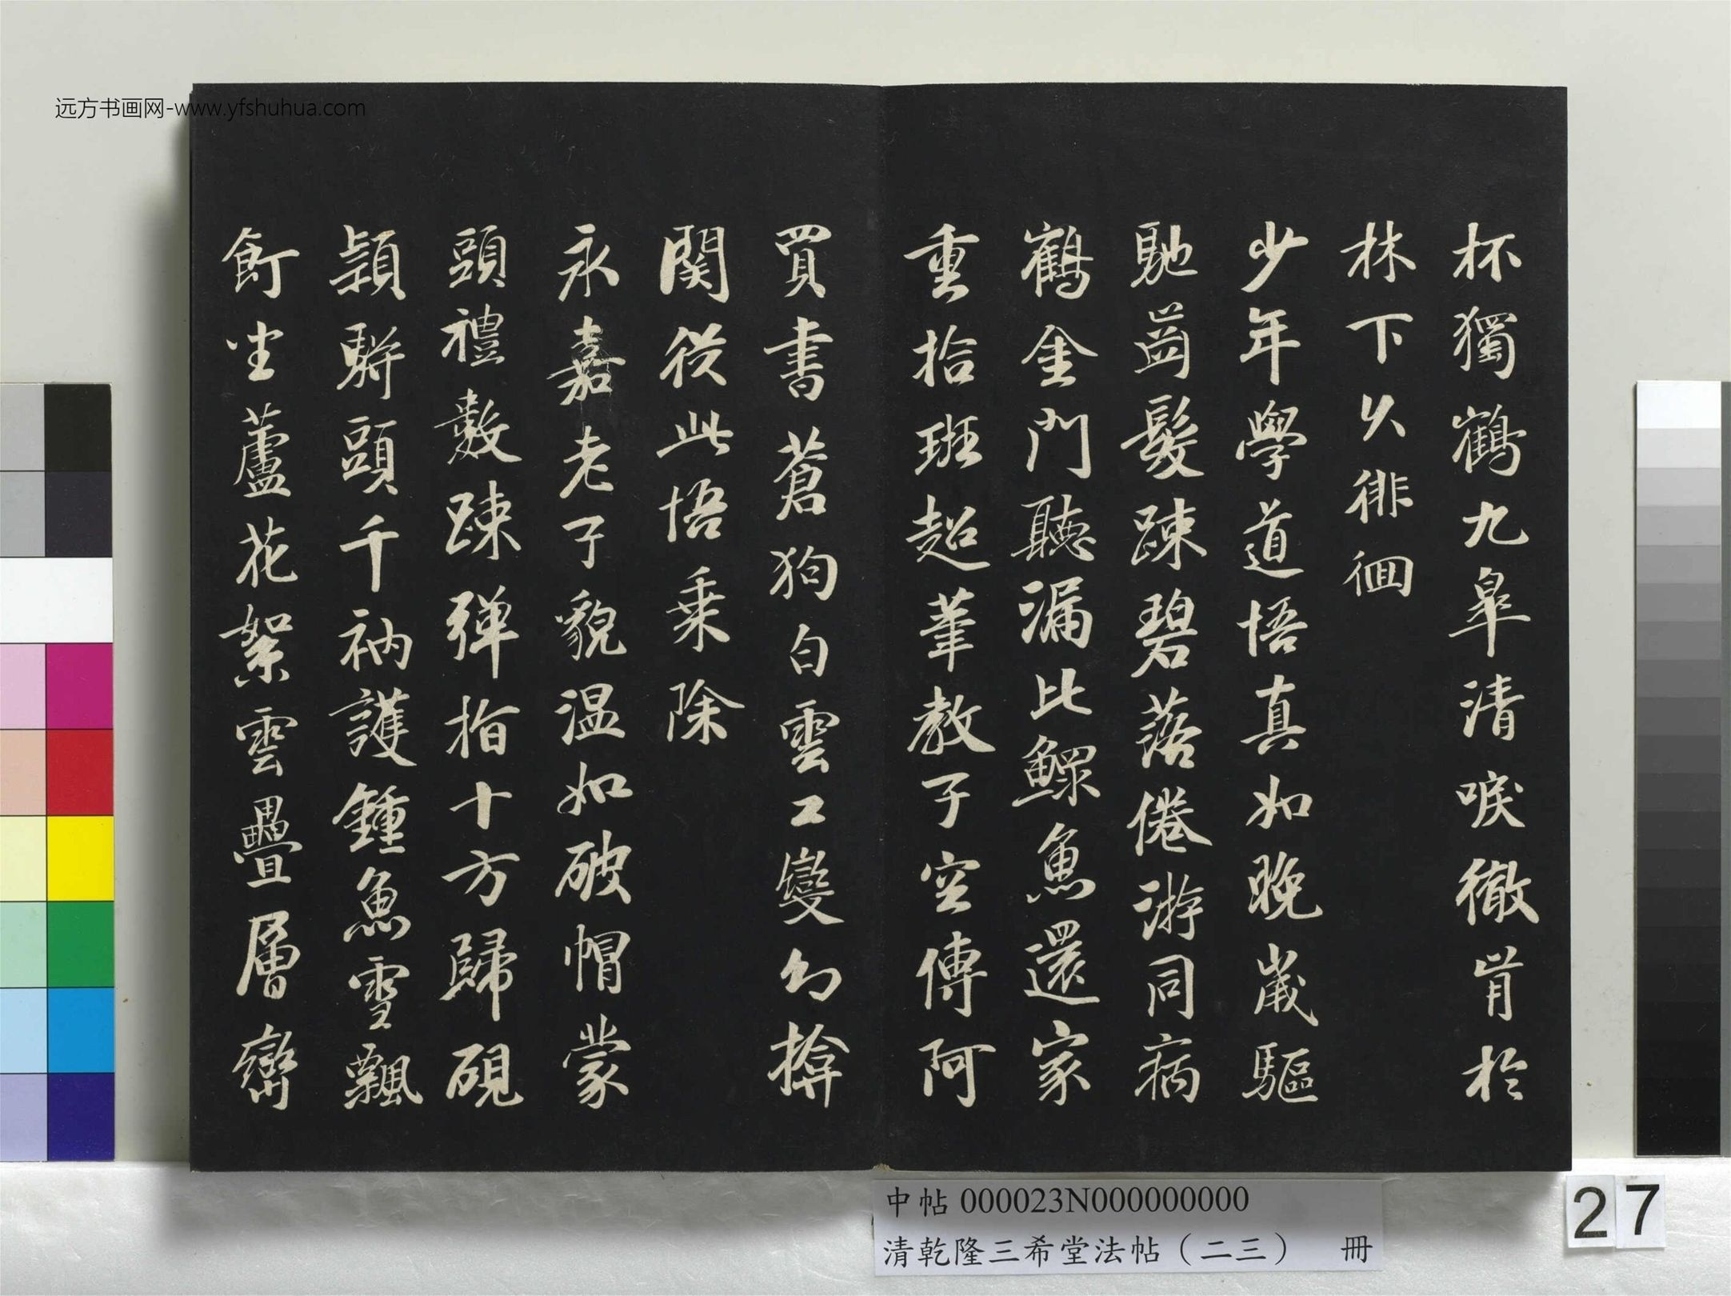 远方书画网-www.yfshuhua.com
杯獨鶴九皋清唳徹背於
林下久徘徊
少年學道悟真如晚歲驅
馳齒髮踈碧落倦游同病
鶴金門聽漏比鰥魚還家
重拾班超筆教子空傳阿
買書蒼狗白雲工變幻掩
關從此悟乘除
永嘉老子貌温如破帽蒙
頭禮數踈彈指十方歸硯
頭騈頭千衲護鍾魚雪飄
飣坐蘆花絮雲疊層巒
中帖 000023N000000000
清乾隆三希堂法帖（二三） 冊
27